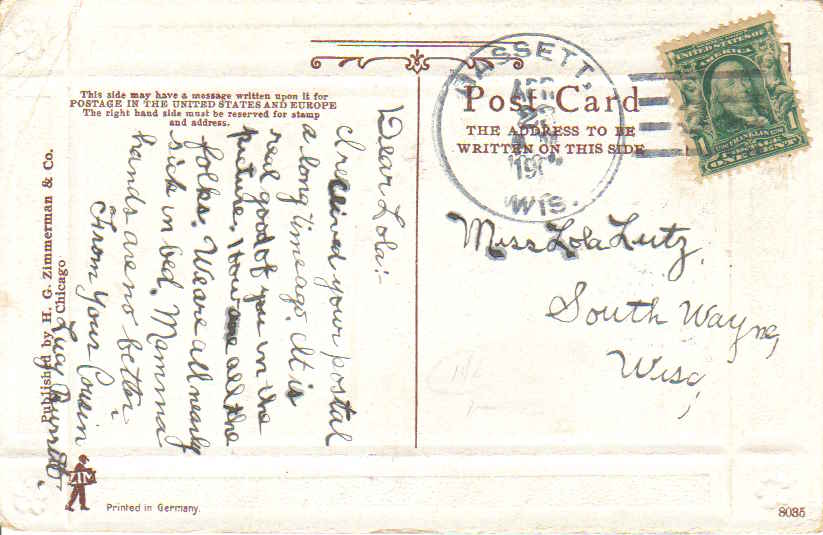 This side may have a message written upon it for
POSTAGE IN THE UNITED STATES AND EUROPE
The right hand side must be reserved for stamp
and address.
Dear Lola:-
I received your postal
a long time ago. It is
real good of you in the
picture. How are all the
folks. We are all nearly
sick in bed. Mamma
hands are no better
From Your Cousin
Lucy
Published by H. G. Zimmerman & Co.
Chicago
AIM
Printed in Germany.
Post Card
THE ADDRESS TO BE
WRITTEN ON THIS SIDE
APR
WIS.
UNITED STATES OF
AMERICA
FRANKLIN
1 ONE CENT 1
Miss Lola Lutz,
South Wayne,
Wisc,
8035